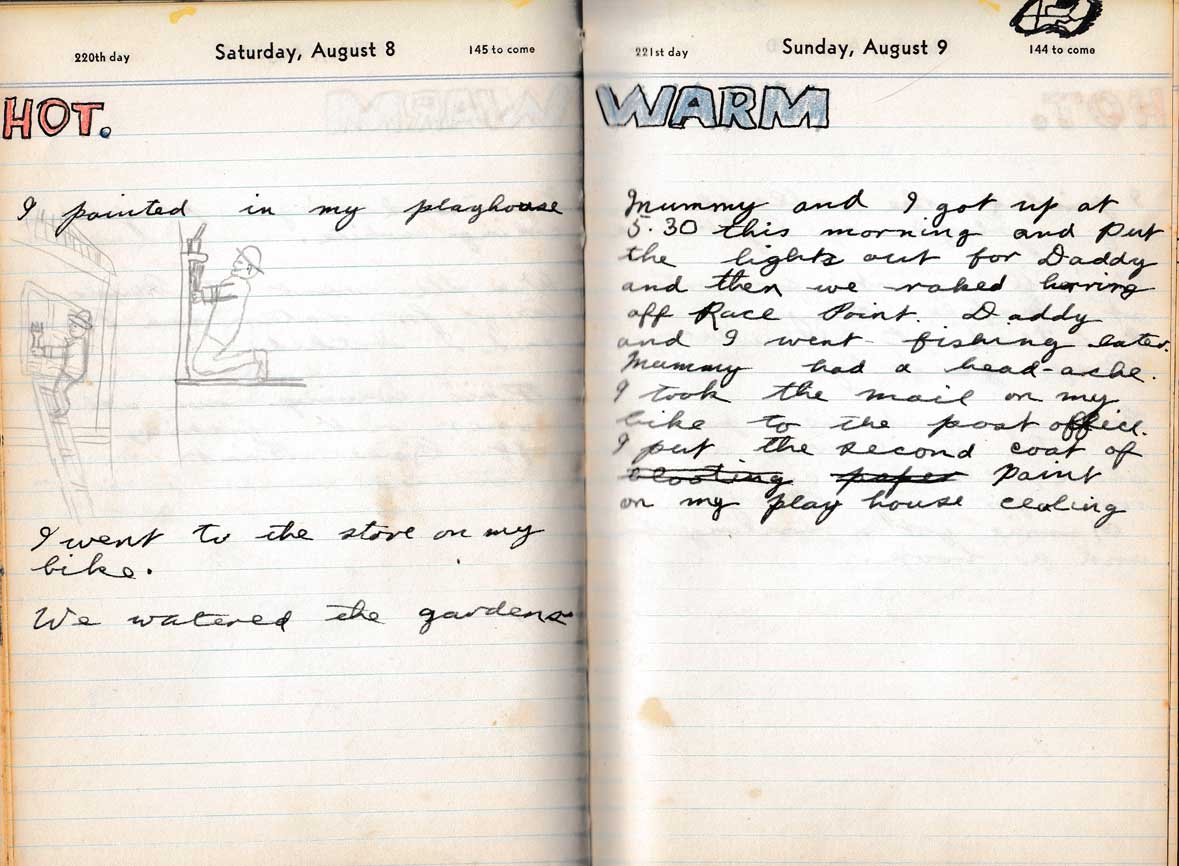 220th day Saturday, August 8 145 to come
HOT.
I painted in my playhouse
I went to the store on my
bike.
We watered the gardens
221st day Sunday, August 9 144 to come
WARM
Mummy and I got up at
5.30 this morning and put
the lights out for Daddy
and then we raked herring
off Race Point. Daddy
and I went fishing later.
Mummy had a head-ache.
I took the mail on my
bike to the post office.
I put the second coat of
blooting paper paint
on my play house cealing